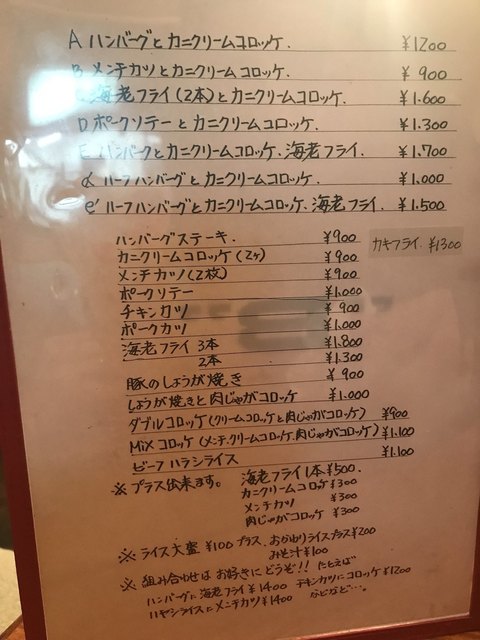 A ハンバーグとカニクリームコロッケ. ¥1200
B メンチカツとカニクリームコロッケ. ¥ 900
海老フライ(2本)とカニクリームコロッケ. ¥1.600
D ポークソテーとカニクリームコロッケ. ¥1.300
E ハンバーグとカニクリームコロッケ、海老フライ. ¥1.700
ハーフハンバーグとカニクリームコロッケ. ¥1.000
e' ハーフハンバーグとカニクリームコロッケ、海老フライ. ¥1.500
ハンバーグステーキ. ¥900
カキフライ. ¥1300
カニクリームコロッケ(2ヶ) ¥900
メンチカツ(2枚) ¥900
ポークソテー ¥1.000
チキンカツ ¥ 900
ポークカツ ¥1.000
海老フライ 3本 ¥1.800
2本 ¥1.300
豚のしょうが焼き ¥ 900
しょうが焼きと肉じゃがコロッケ ¥1.000
ダブルコロッケ(クリームコロッケと肉じゃがコロッケ) ¥900
Mixコロッケ(メンチ、クリームコロッケ、肉じゃがコロッケ) ¥1.100
ビーフハヤシライス ¥1.100
※プラス出来ます。 海老フライ1本¥500.
カニクリームコロッケ¥300
メンチカツ ¥300
肉じゃがコロッケ ¥300
※ライス大盛 ¥100プラス、おかわりライスプラス¥200
みそ汁¥100
※ 組み合わせは お好きにどうぞ!! たとえば
ハンバーグに海老フライ¥1400 チキンカツにコロッケ¥1200
ハヤシライスにメンチカツ¥1400 などなど….